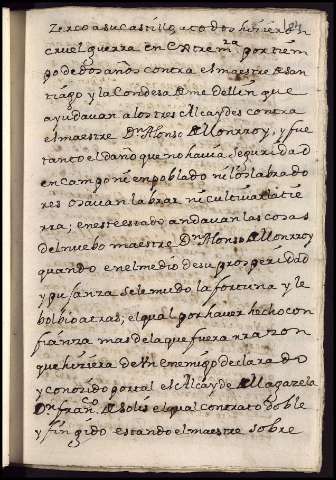 Zerco a su Castillo, y codos hizieron
cruel guerra en Extrem.ra por tiem
po de dos años contra el maestre de san
tiago y la Condesa de medellin que
ayudavan a los tres Alcaydes contra
el maestre Dn Alonso de Monrroy, y fue
tanto el daño que no havia seguridad
en campo ni en poblado ni los labrado
res osavan labrar ni cultivar la tie
rra; en este estado andavan las cosas
del nuebo maestre Dn Alonso de Monrroy
quando en el medio de su prosperidad
y pujanza se le mudo la fortuna y le
bolbio atras; el qual por haver hecho con
fianza mas de la que fuera razon
que hiziera de Vn enemigo declarado
y conozido por tal el Alcayde de Magazela
Dn fran.co de Solis el qual con trato doble
y fingido estando el maestre sobre